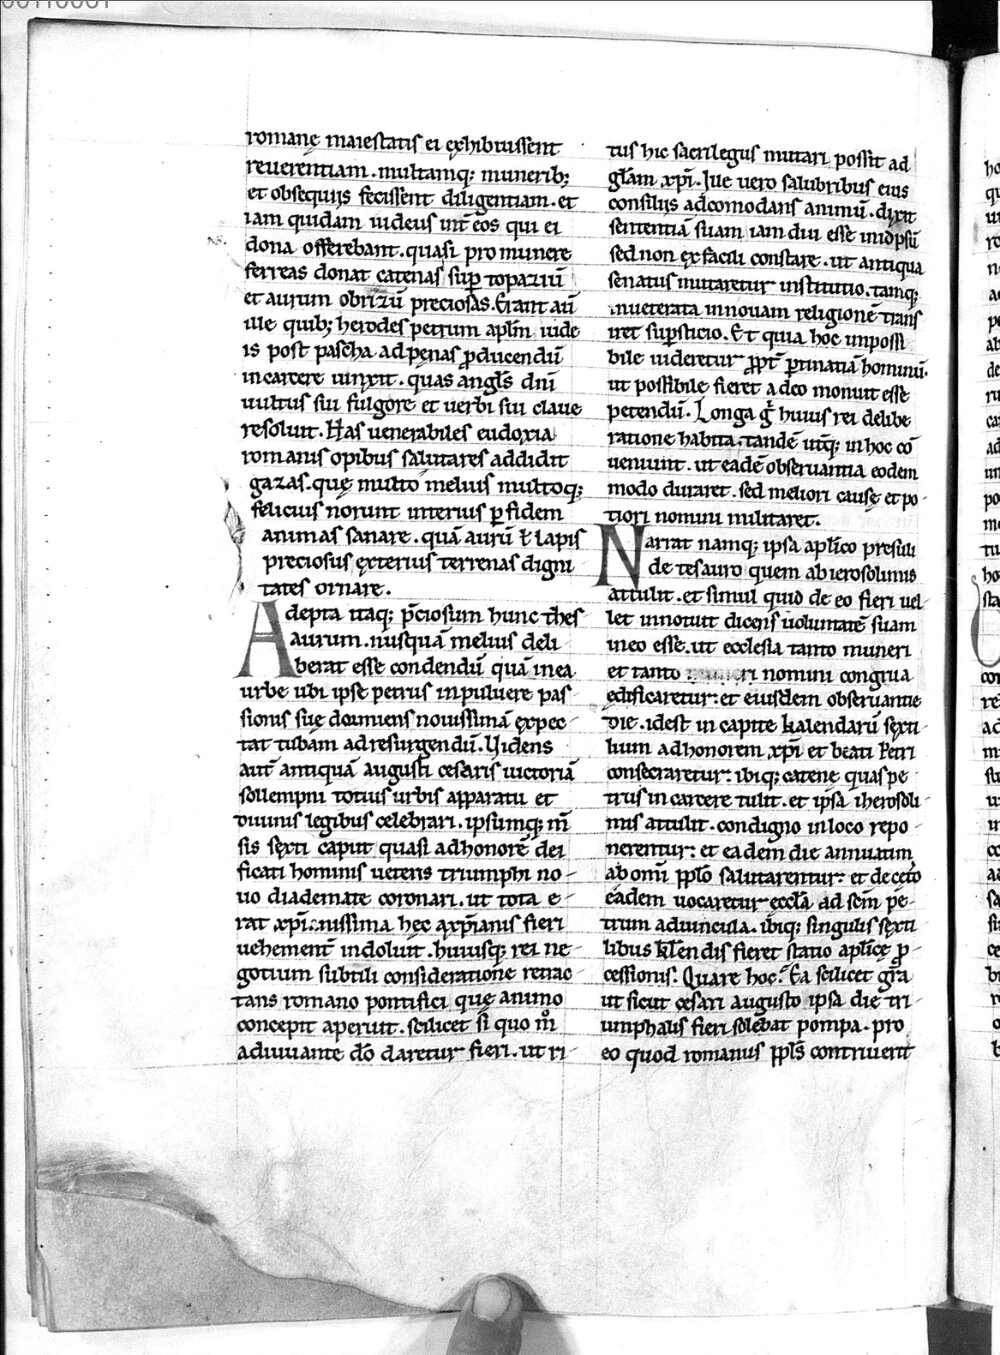 romanę maiestatis ei exhibuissent
reuerentiam. multamq; munerib;
et obsequijs fecissent diligentiam. et
iam quidam iudeus int̄ eos qui ei
dona offerebant. quasi pro munere
ferreas donat catenas sup̄ topaziū
et aurum obrizū preciosas. Erant aū
ille quib; herodes petrum aplm̄ uide
is post pascha ad pęnas ꝓducendū
in carcere uinxit. quas angl̄s dn̄i
uultus sui fulgore et uerbi sui claue
resoluit. Has uenerabiles eudoxia
romanis opibus salutares addidit
gazas. quę multo melius multoq;
felicius norunt interius ꝑ fidem
animas sanare. quā aurū ł lapis
preciosus exterius terrenas digni
tates ornare.
Adepta itaq; p̄ciosum hunc thes
aurum. nusquā melius deli
berat esse condendū quā in ea
urbe ubi ipse petrus in puluere pas
sionis suę dormiens nouissimā expec
tat tubam ad resurgendū. Uidens
aut̄ antiquā augusti cesaris uictoriā
sollempni totius urbis apparatu et
diuinis legibus celebrari. ipsumq; m̄
sis sexti caput quasi ad honorē dei
ficati hominis ueteris triumphi no
uo diademate coronari. ut tota e
rat xp̄i..nissima hec a xp̄ianis fieri
uehement̄ indoluit. huiusq; rei ne
gotium subtili consideratione renac
tans romano pontifici quę animo
concepit aperuit. scilicet si quo m̊
adiuuante dō daretur fieri. ut ri
tus hic sacrilegus mutari possit ad
gl̄am xp̄i. Ille uero salubribus eius
consilijs adcomodans animū. dixit
sententiā suam iam diu esse in id ipsū
sed non ex facili constare. ut antiqua
senatus mutaretur institutio. tamq;
inueterata in nouam religionē trans
iret sup̄sticio. Et quia hoc impossi
bile uideretur ꝓpt̄ ꝑtinatiā hominū.
ut possibile fieret a deo monuit esse
petendū. Longa g̊ huius rei delibe
ratione habita. tandē utq; in hoc cō
ueniunt. ut eadē obseruantia eodem
modo duraret. sed meliori causę et po
tiori nomini militaret.
Narrat namq; ipsa aplico presuli
de tesauro quem ab ierosolimis
attulit. et simul quid de eo fieri uel
let innotuit dicens uoluntatē suam
in eo esse. ut ecclesia tanto muneri
et tanto nomini congrua
edificaretur: et eiusdem obseruantie
die. idest in capite kalendarū sexti
lium ad honorem xp̄i et beati Petri
consecraretur: ibiq; catene quas pe
trus in carcere tulit. et ipsa iherosoli
mis attulit. condigno in loco repo
nerentur: et eadem die annuatim
ab omī ppl̄o salutarentur: et de cet̄o
eadem uocaretur eccl̄a ad scm̄ pe
trum aduincula. ibiq; singulis sexti
libus kl̄endis fieret statio aplicę ꝓ
cessionis. Quare hoc? Ea scilicet gr̄a
ut sicut cesari augusto ipsa die tri
umphalis fieri solebat pompa. pro
eo quod romanus ppl̄s contriuerit